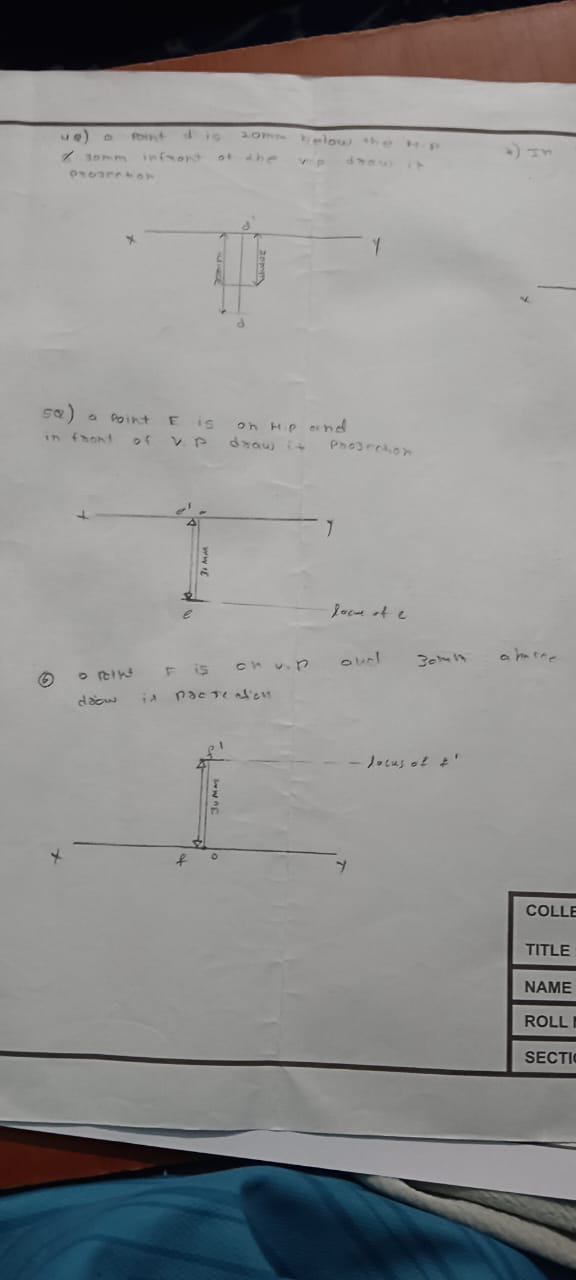 4Q) a point d is 20mm below the H.P
& 30mm infront of the v.p draw it
projection
*) In
d'
x
y
30mm
20mm
d
x
5Q) a Point E is on H.P and
in front of V.P draw it Projection
e'
y
30 MM
e
locus of e
⑥ a Point F is on v.p and 30mm above
draw it
f'
locus of f'
30 MM
x
f
o
y
COLLE
TITLE
NAME
ROLL
SECTI